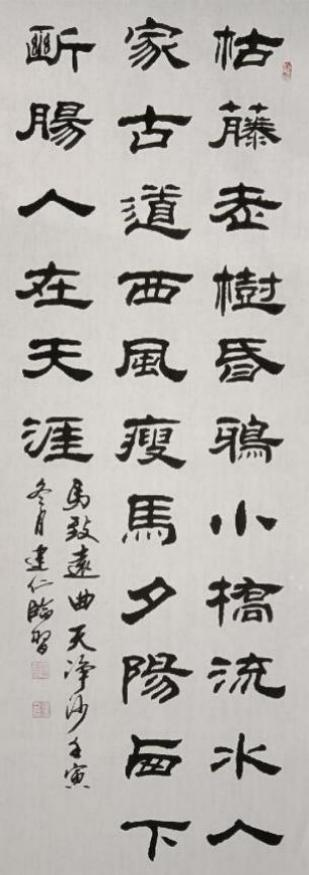 枯藤老樹昏鴉小橋流水人
家古道西風瘦馬夕陽西下
斷腸人在天涯
馬致遠曲天净沙壬寅
冬月建仁臨習